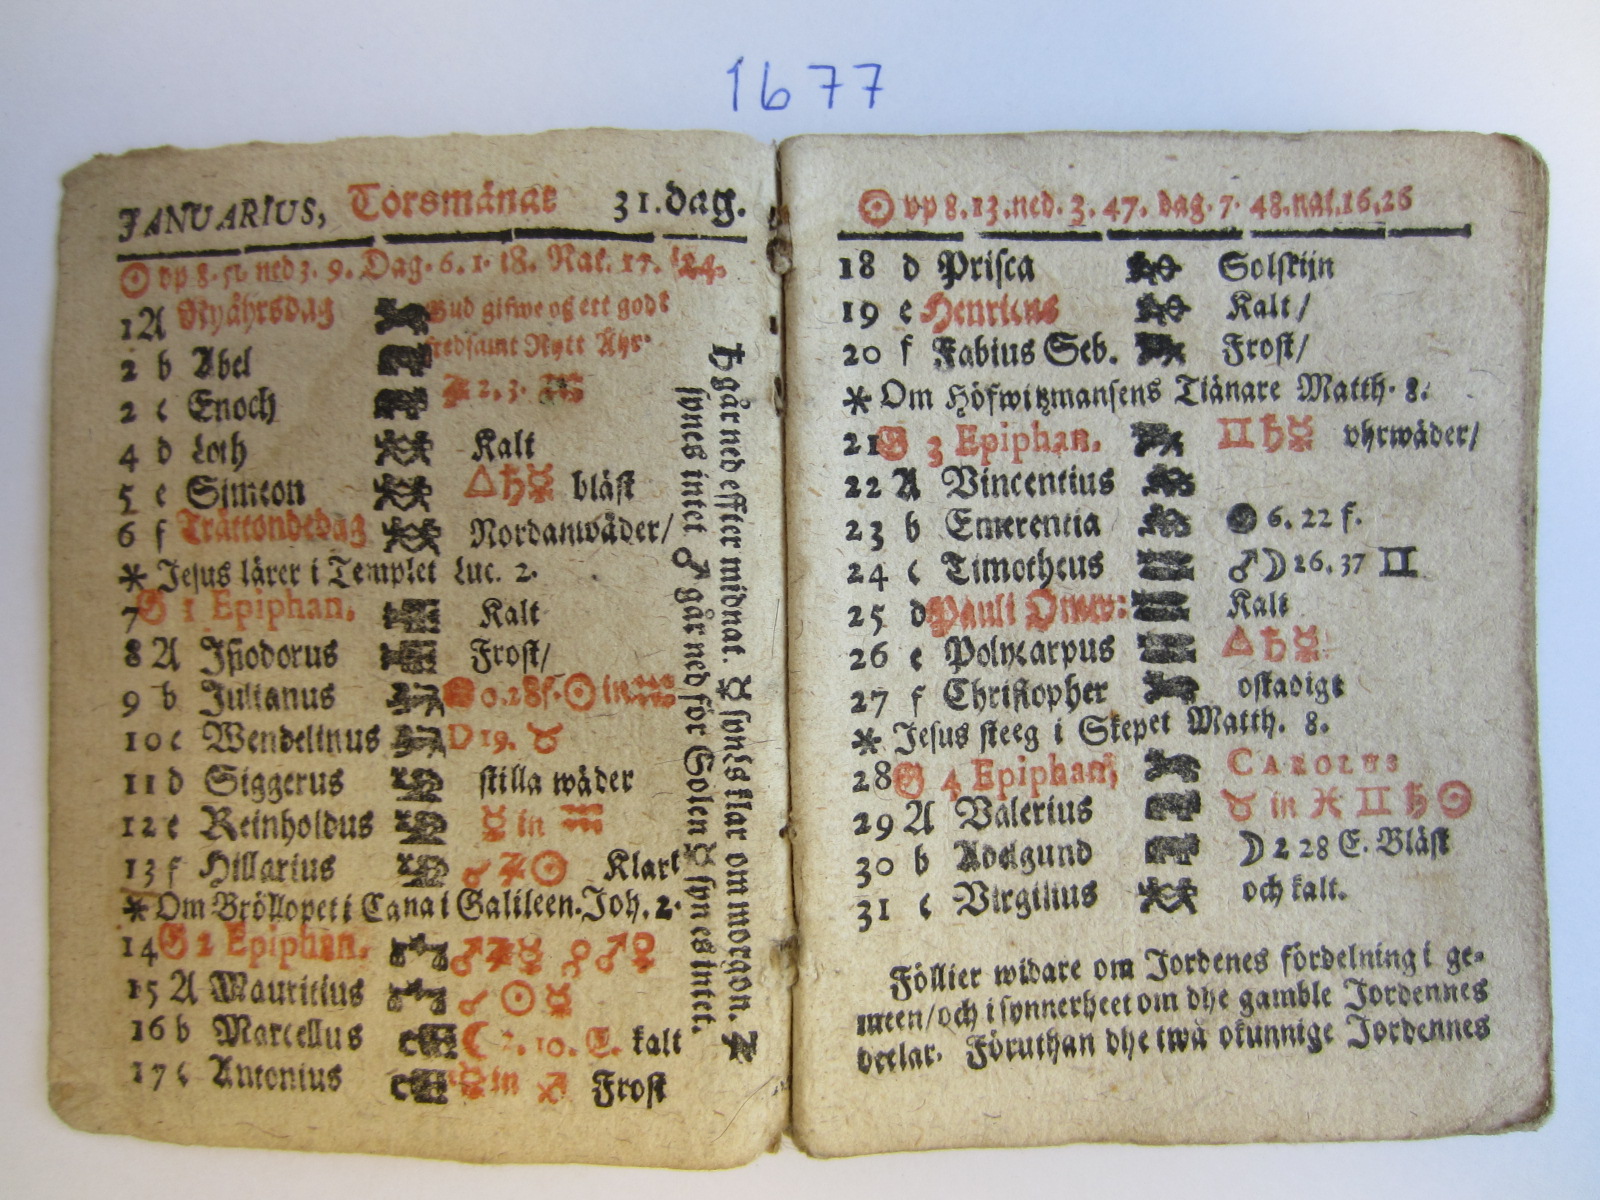 1677
JANUARIUS, Torsmånat 31.dag.
☉ vp 8.51 ned 3. 9. Dag. 6. 1. 18. Nat. 17.
1 A Nyåhrsdag Gud gifwe oß ett godt
fredsamt Nytt Åhr.
2 b Abel
2 c Enoch 2. 3. ♒
4 d Loth Kalt
5 e Simeon △♄☿ bläst
6 f Trättondedag Nordanwäder/
* Jesus lärer i Templet Luc. 2.
7 G 1 Epiphan. Kalt
8 A Isiodorus Frost/
9 b Julianus 0.28f. ☉ in ♒
10 c Wendelinus D 19. ♉
11 d Siggerus stilla wäder
12 e Reinholdus ☿ in ♒
13 f Hillarius ☌ ♃ ☉ Klart
* Om Bröllopet i Cana i Galileen. Joh. 2.
14 G 2 Epiphan. ♂♃☿ ♀♂♀
15 A Mauritius ☌ ☉ ☿
16 b Marcellus ☾ 2. 10. E. kalt
17 c Antonius in ♐ Frost
♄ går ned effter midnat. ☿ synes klar om morgon. ♃
synes intet ♂ går ned för Solen ☿ synes intet.
☉ vp 8.13.ned. 3. 47. dag. 7. 48.nat.16.26
18 d Prisca Solskijn
19 e Henricus Kalt/
20 f Fabius Seb. Frost/
* Om Höfwitzmansens Tiänare Matth. 8.
21 G 3 Epiphan. ♊♄☿ vhrwäder/
22 A Vincentius
23 b Emerentia ● 6. 22 f.
24 c Timotheus ♂☽ 26. 37 ♊
25 d Pauli Omw: Kalt
26 e Polycarpus △♄☿
27 f Christopher ostadigt
* Jesus steeg i Skepet Matth. 8.
28 G 4 Epiphan, CAROLUS
29 A Valerius ♉ in ♓ ♊ ♄ ☉
30 b Adelgund ☽ 2 28 E. Bläst
31 c Virgilius och kalt.
Föllier widare om Jordenes fördelning i ge-
meen/och i synnerheet om dhe gamble Jordennes
deelar. Föruthan dhe twå okunnige Jordennes